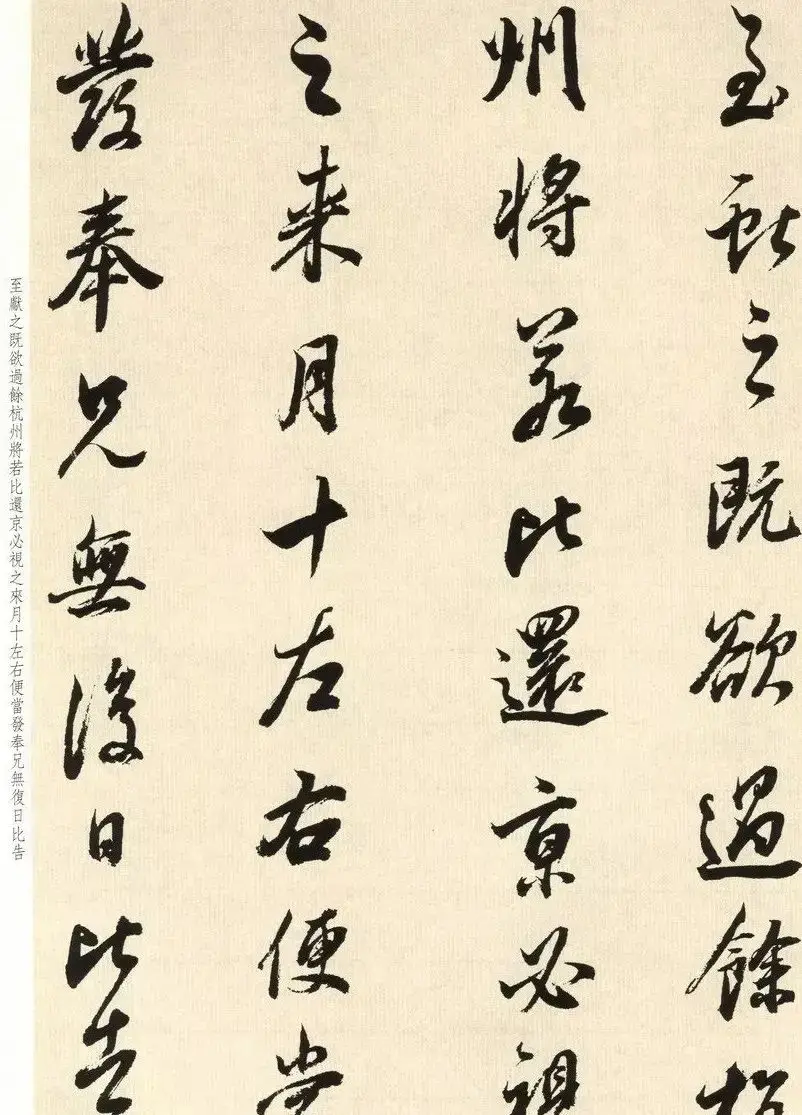 至獻之既欲過餘杭
州將若比還京必視
之來月十左右便當
發奉兄無復日比告
至獻之既欲過餘杭州將若比還京必視之來月十左右便當發奉兄無復日比告